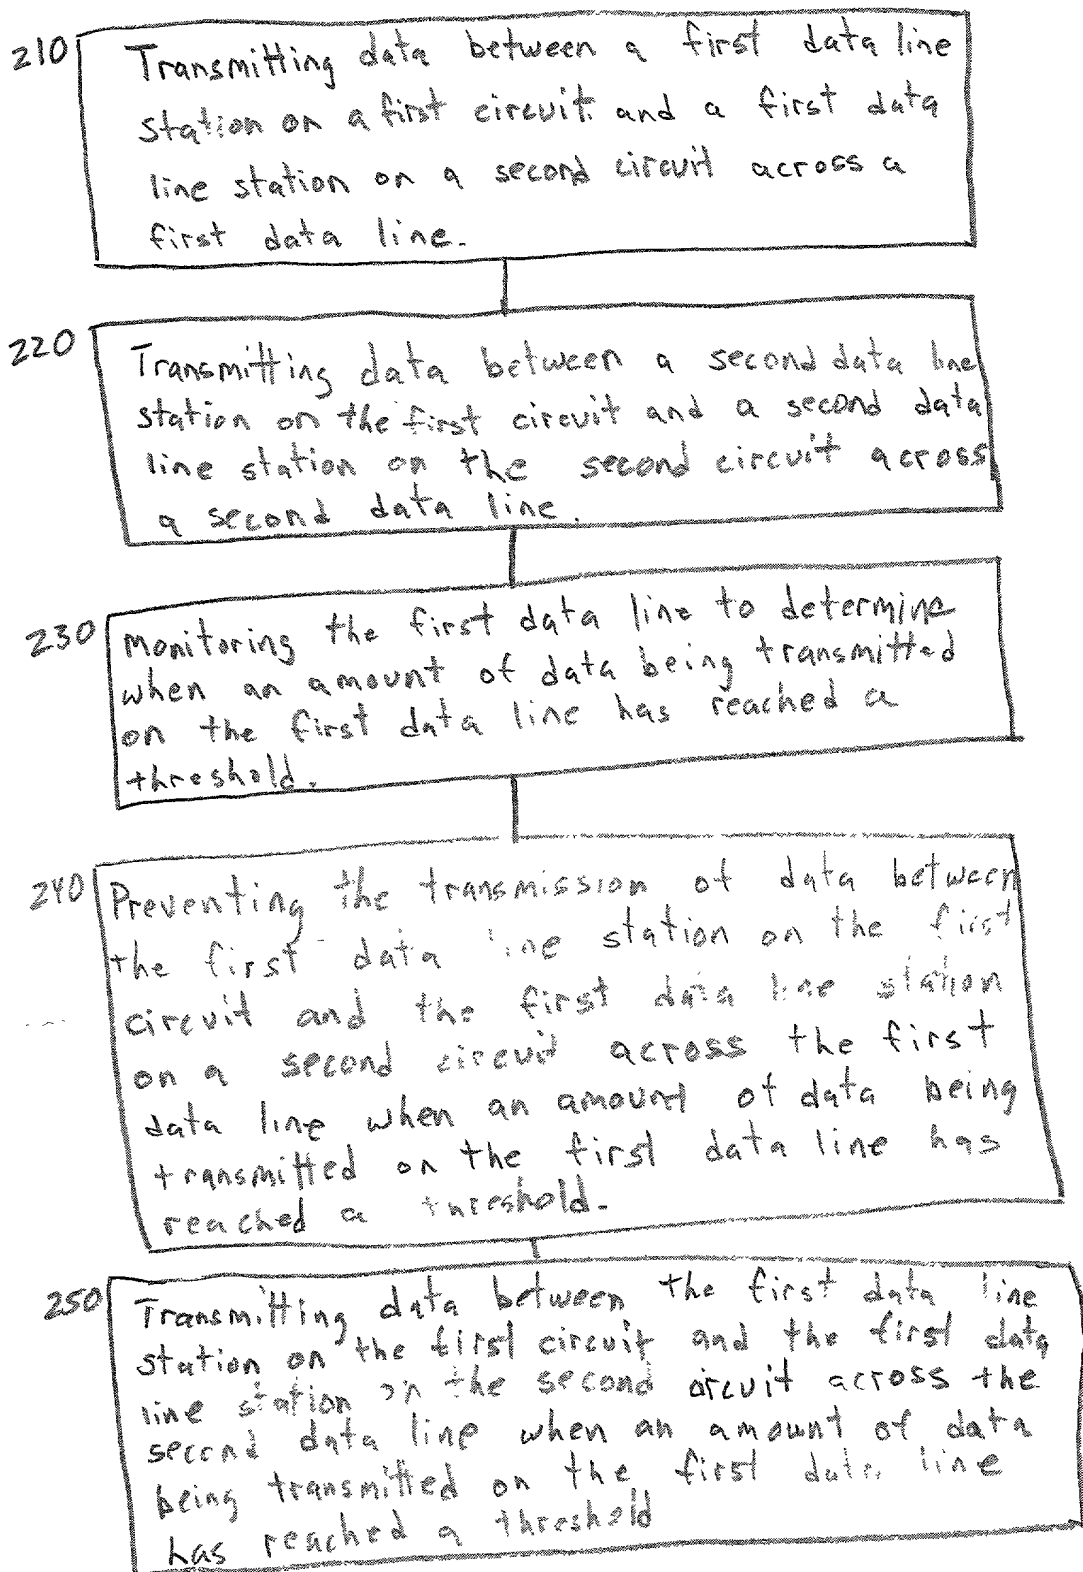 210 Transmitting data between a first data line
station on a first circuit and a first data
line station on a second circuit across a
first data line.
220 Transmitting data between a second data line
station on the first circuit and a second data
line station on the second circuit across
a second data line.
230 Monitoring the first data line to determine
when an amount of data being transmitted
on the first data line has reached a
threshold.
240 Preventing the transmission of data between
the first data line station on the first
circuit and the first data line station
on a second circuit across the first
data line when an amount of data being
transmitted on the first data line has
reached a threshold.
250 Transmitting data between the first data line
station on the first circuit and the first data
line station on the second circuit across the
second data line when an amount of data
being transmitted on the first data line
has reached a threshold